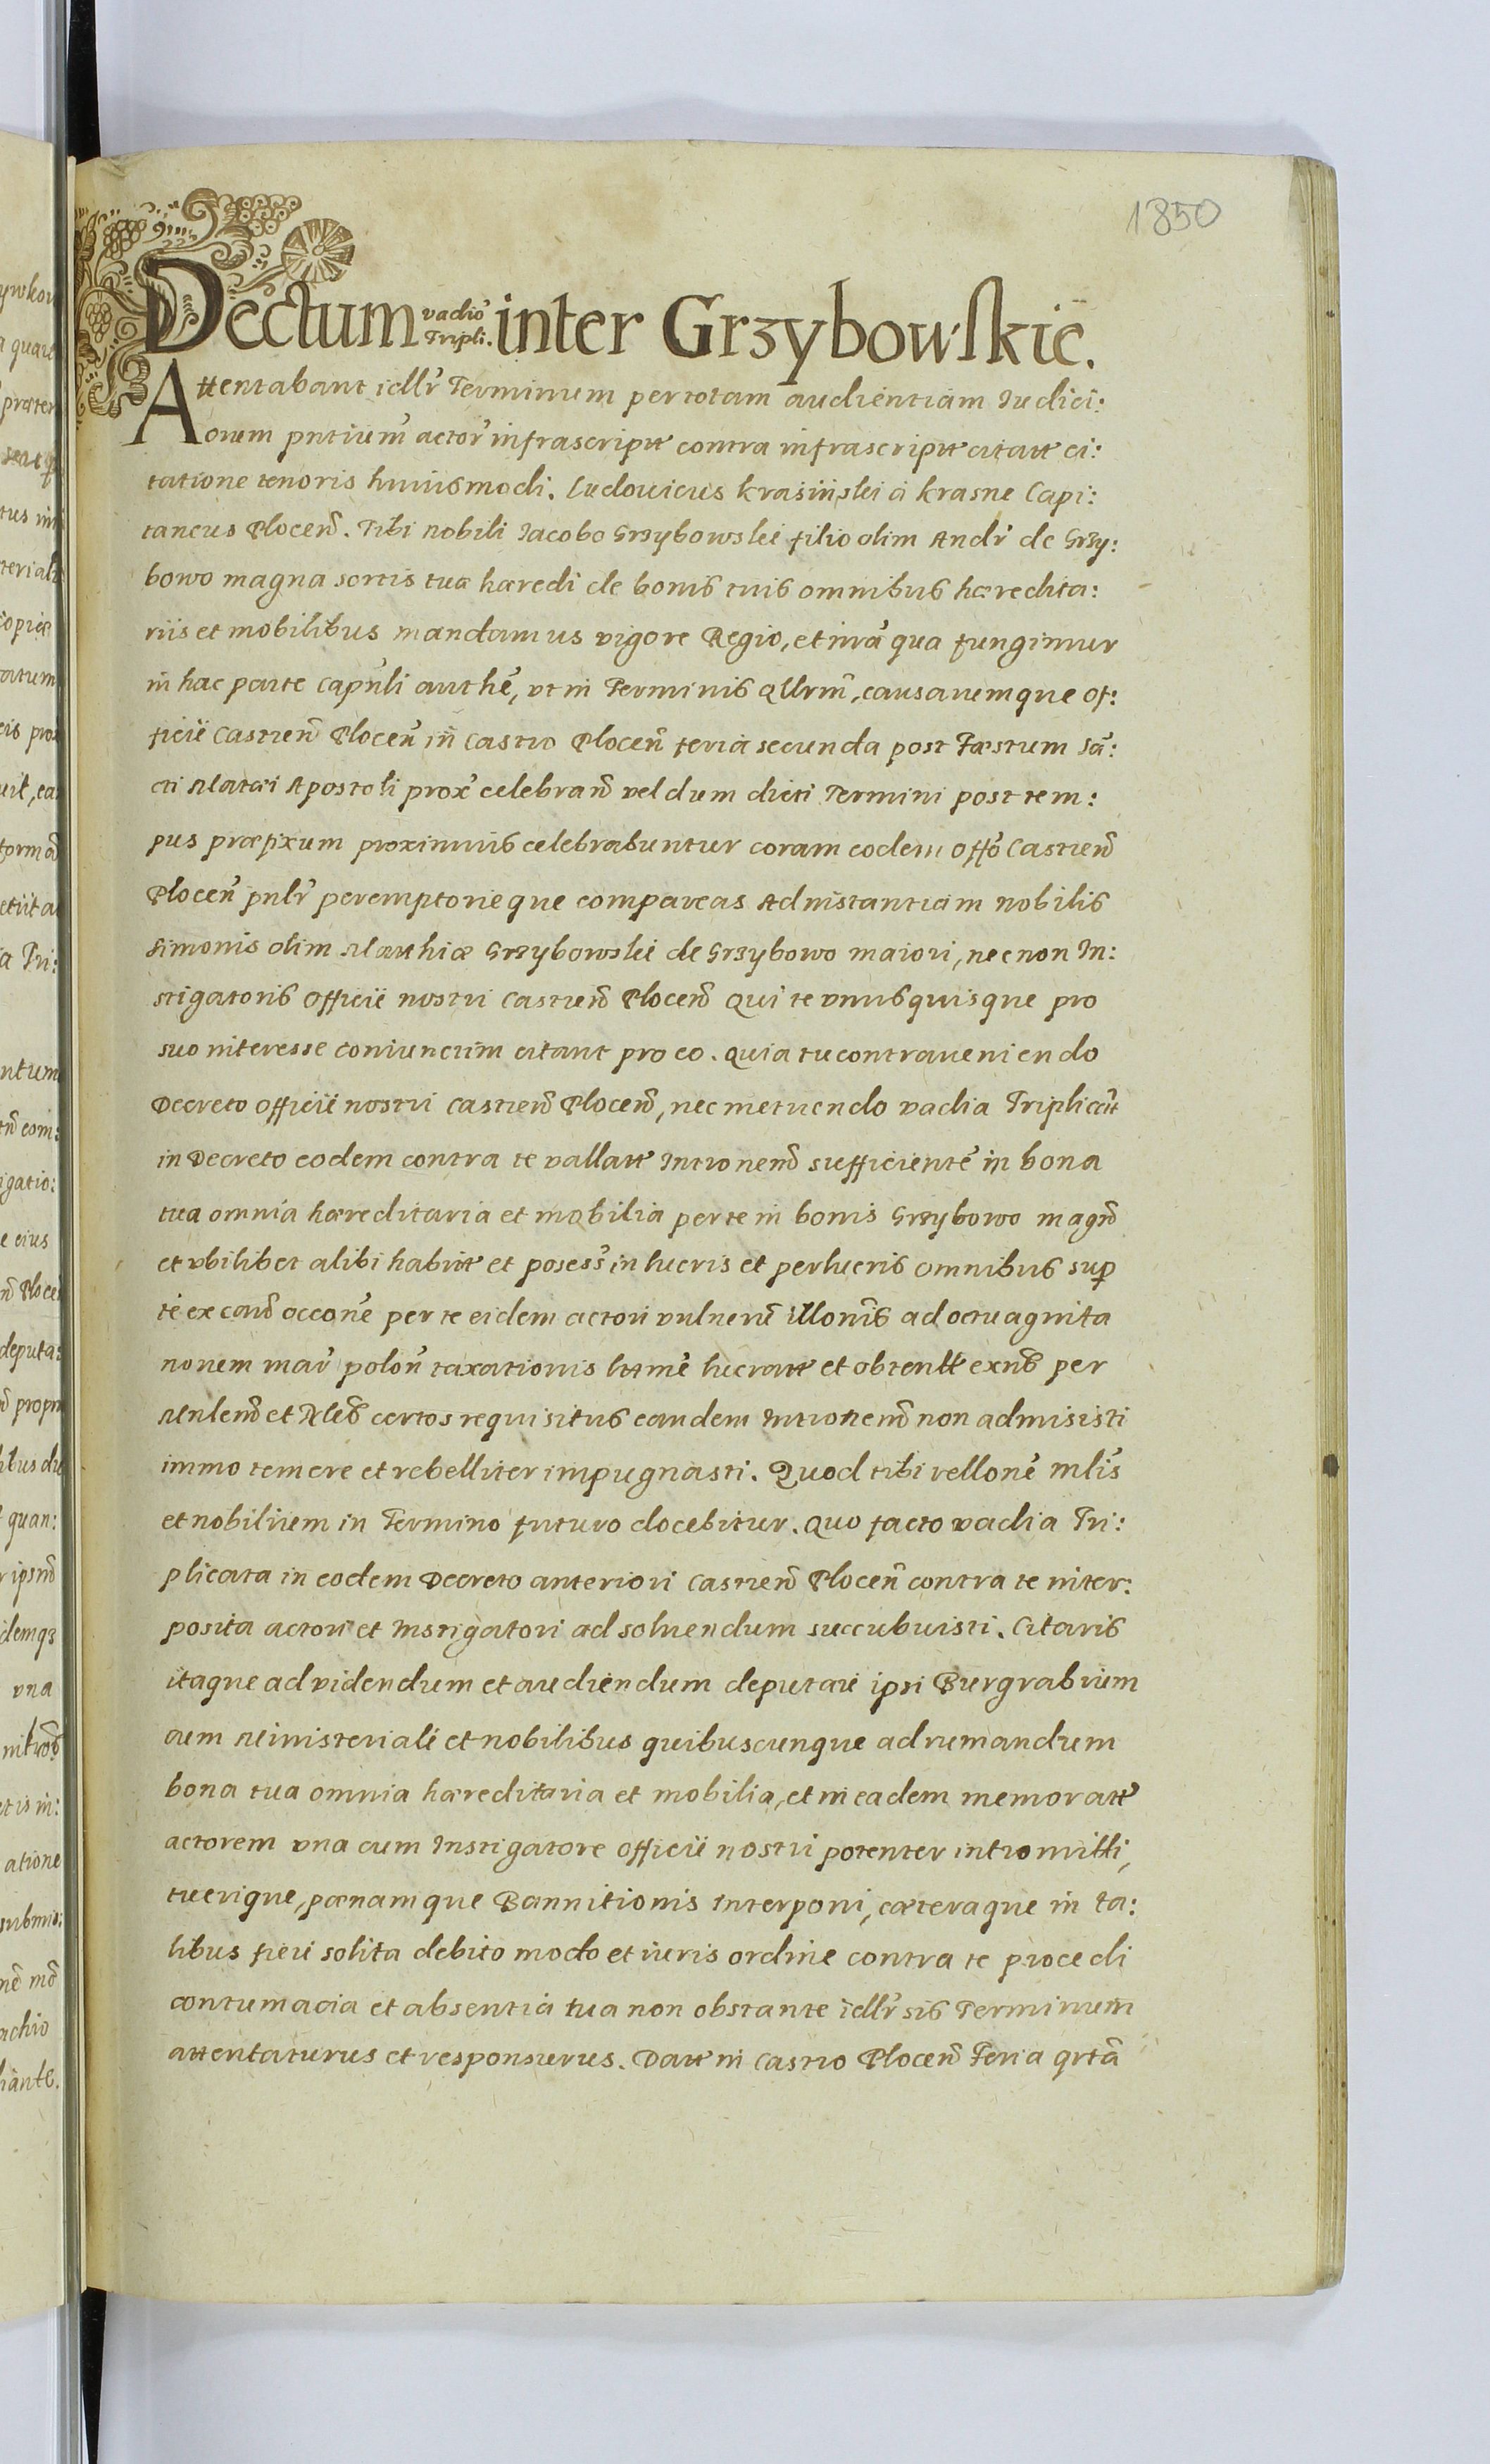 1850
Dectum vadio᷒ Tripli. inter Grzybowskie.
Attentabant iellr̃ Terminum per totam audientiam Iudici:
orum pntium̃ actor̃ infrascriptt contra infrascriptt citatt ci:
tatione tenoris huiusmodi. Ludouicus Krasiinski a Krasne Capi:
taneus Plocen̄. Tibi Nobili Iacobo Grzybowski filio olim Andr̃ de Grzy:
bowo magna sortis tuæ hæredi de bonis tuis omnibus hæredita:
riis et mobilibus mandamus vigore Regio, et inrã qua fungimur
in hac parte Capñli authẽ, vt in Terminis Qllrm̃, causarumque of:
ficii Castren̄ Plocen̄ in Castro Plocen̄ feria secunda post Fæstum Sã:
cti Matæi Apostoli prox̃ celebran̄ vel dum dicti Termini post tem:
pus præfixum proximius celebrabuntur coram eodem Offõ Castren̄
Plocen̄ pnlr̃ peremptorieque compareas Ad instantiam nobilis
Simonis olim Mathiæ Grzybowski de Grzybowo maiori, nec non In:
stigatoris Officii nostri Castren̄ Plocen̄ Qui te vnusquisque pro
suo interesse coniunctim citant pro eo. Quia tu contraueniendo
Decreto Officii nostri Castren̄ Plocen̄, nec metuendo vadia Triplicat̃
in Decreto eodem contra te vallatt Intronen̄ sufficientẽ in bona
tua omnia hæreditaria et mobilia per te in bonis Grzybowo magn̄
et vbilibet alibi habitt et posess̃ in lucris et perlucris omnibus sup̱
te ex caus̄ acconẽ per te eidem actori vulnerũ illonĩs ad octuaginta
nonem mar̃ polon̄ taxationis littmẽ lucratt et obtentt exnt̄ per
Mnlem̄ et Nleb̄ certos requisitus eandem Intronem̄ non admisisti
immo temere et rebelliter impugnasti. Quod tibi rellonẽ mlĩs
et nobilium in Termino futuro docebitur. Quo facto vadia Tri:
plicata in eodem Decreto anteriori Castren̄ Plocen̄ contra te inter:
posita actori et Instigatori ad soluendum succubuisti. Citaris
itaque ad videndum et audiendum deputari ipsi Burgrabium
cum Ministeriali et nobilibus quibuscunque ad rumandum
bona tua omnia hæreditaria et mobilia, et in eadem memoratt
actorem vna cum Instigatore Officii nostri potenter intromitti,
tuerique, pænamque Bannitionis Interponi, cæteraque in ta:
libus fieri solita debito modo et iuris ordine contra te procedi
contumacia et absentia tua non obstante iellr̃ sis Terminum
attentaturus et responsurus. Datt in Castro Plocen̄ Feria qrtã